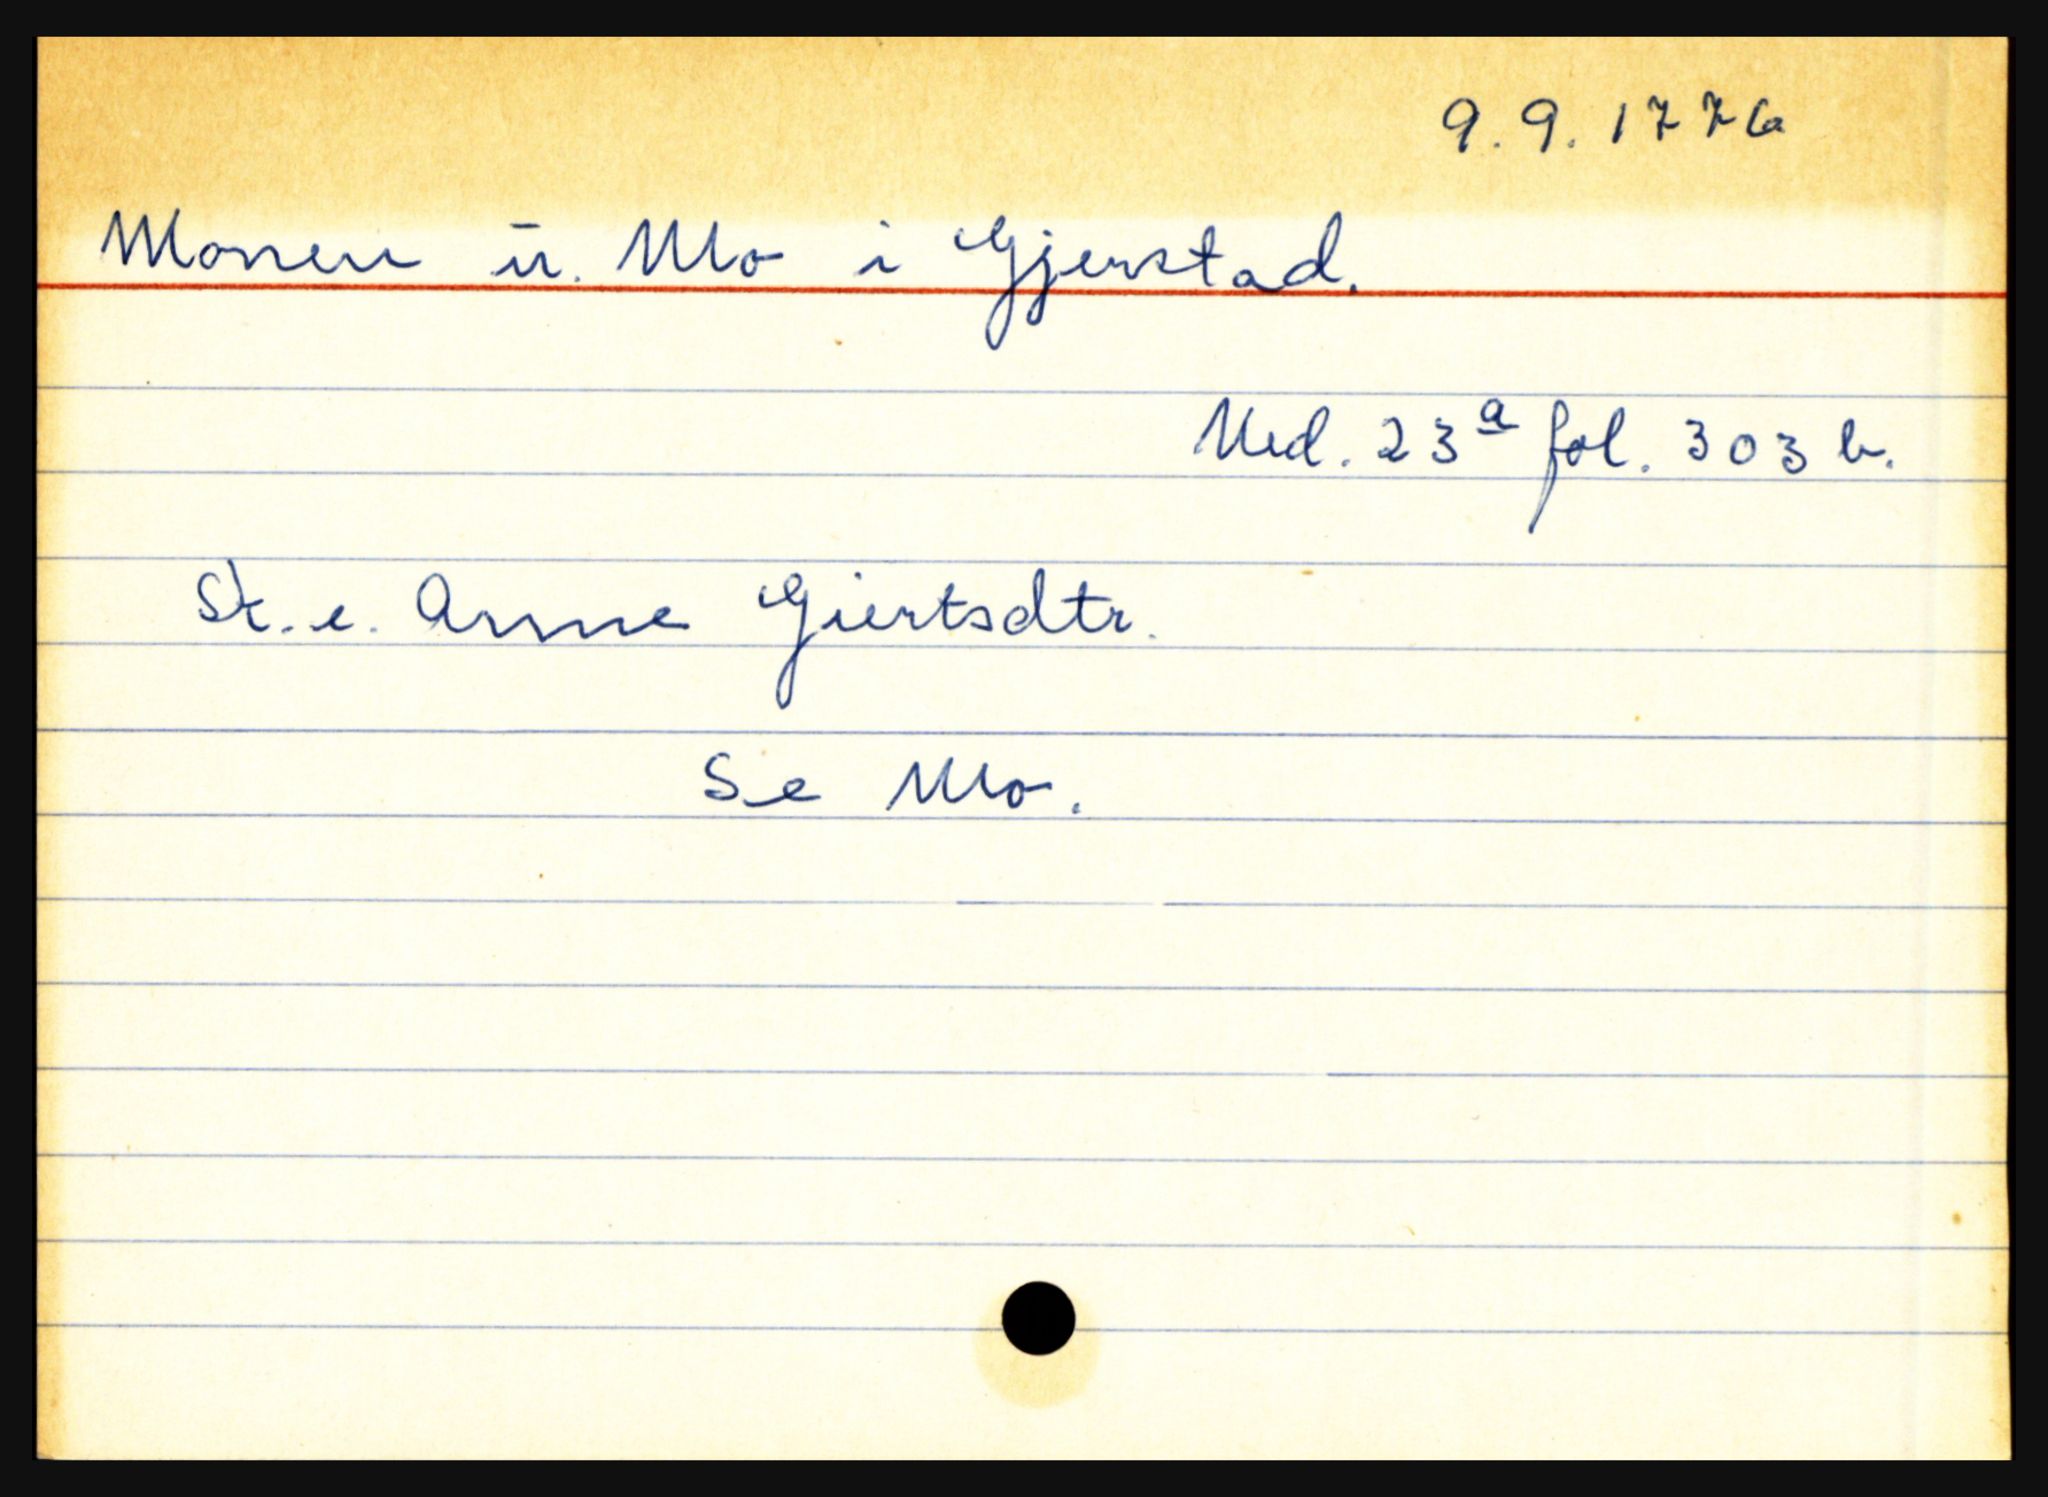 9.9.1776
Monen u. Mo i Gjerstad.
Ned. 23a fol. 303 b.
Sk. e. Anne Giertsdtr.
Se Mo.